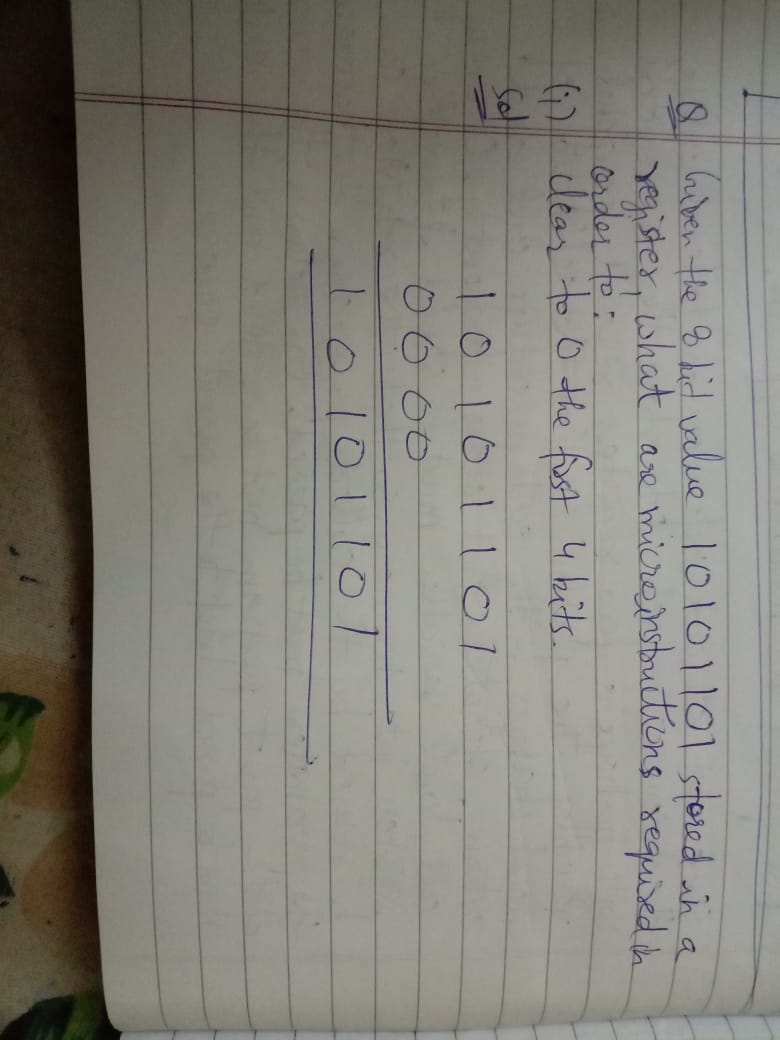 Q Given the 8 bit value 10101101 stored in a
register, what are microinstructions required in
order to:
(i) clear to 0 the first 4 bits.
Sol
1 0 1 0 1 1 0 1
0 0 0 0
1 0 1 0 1 1 0 1